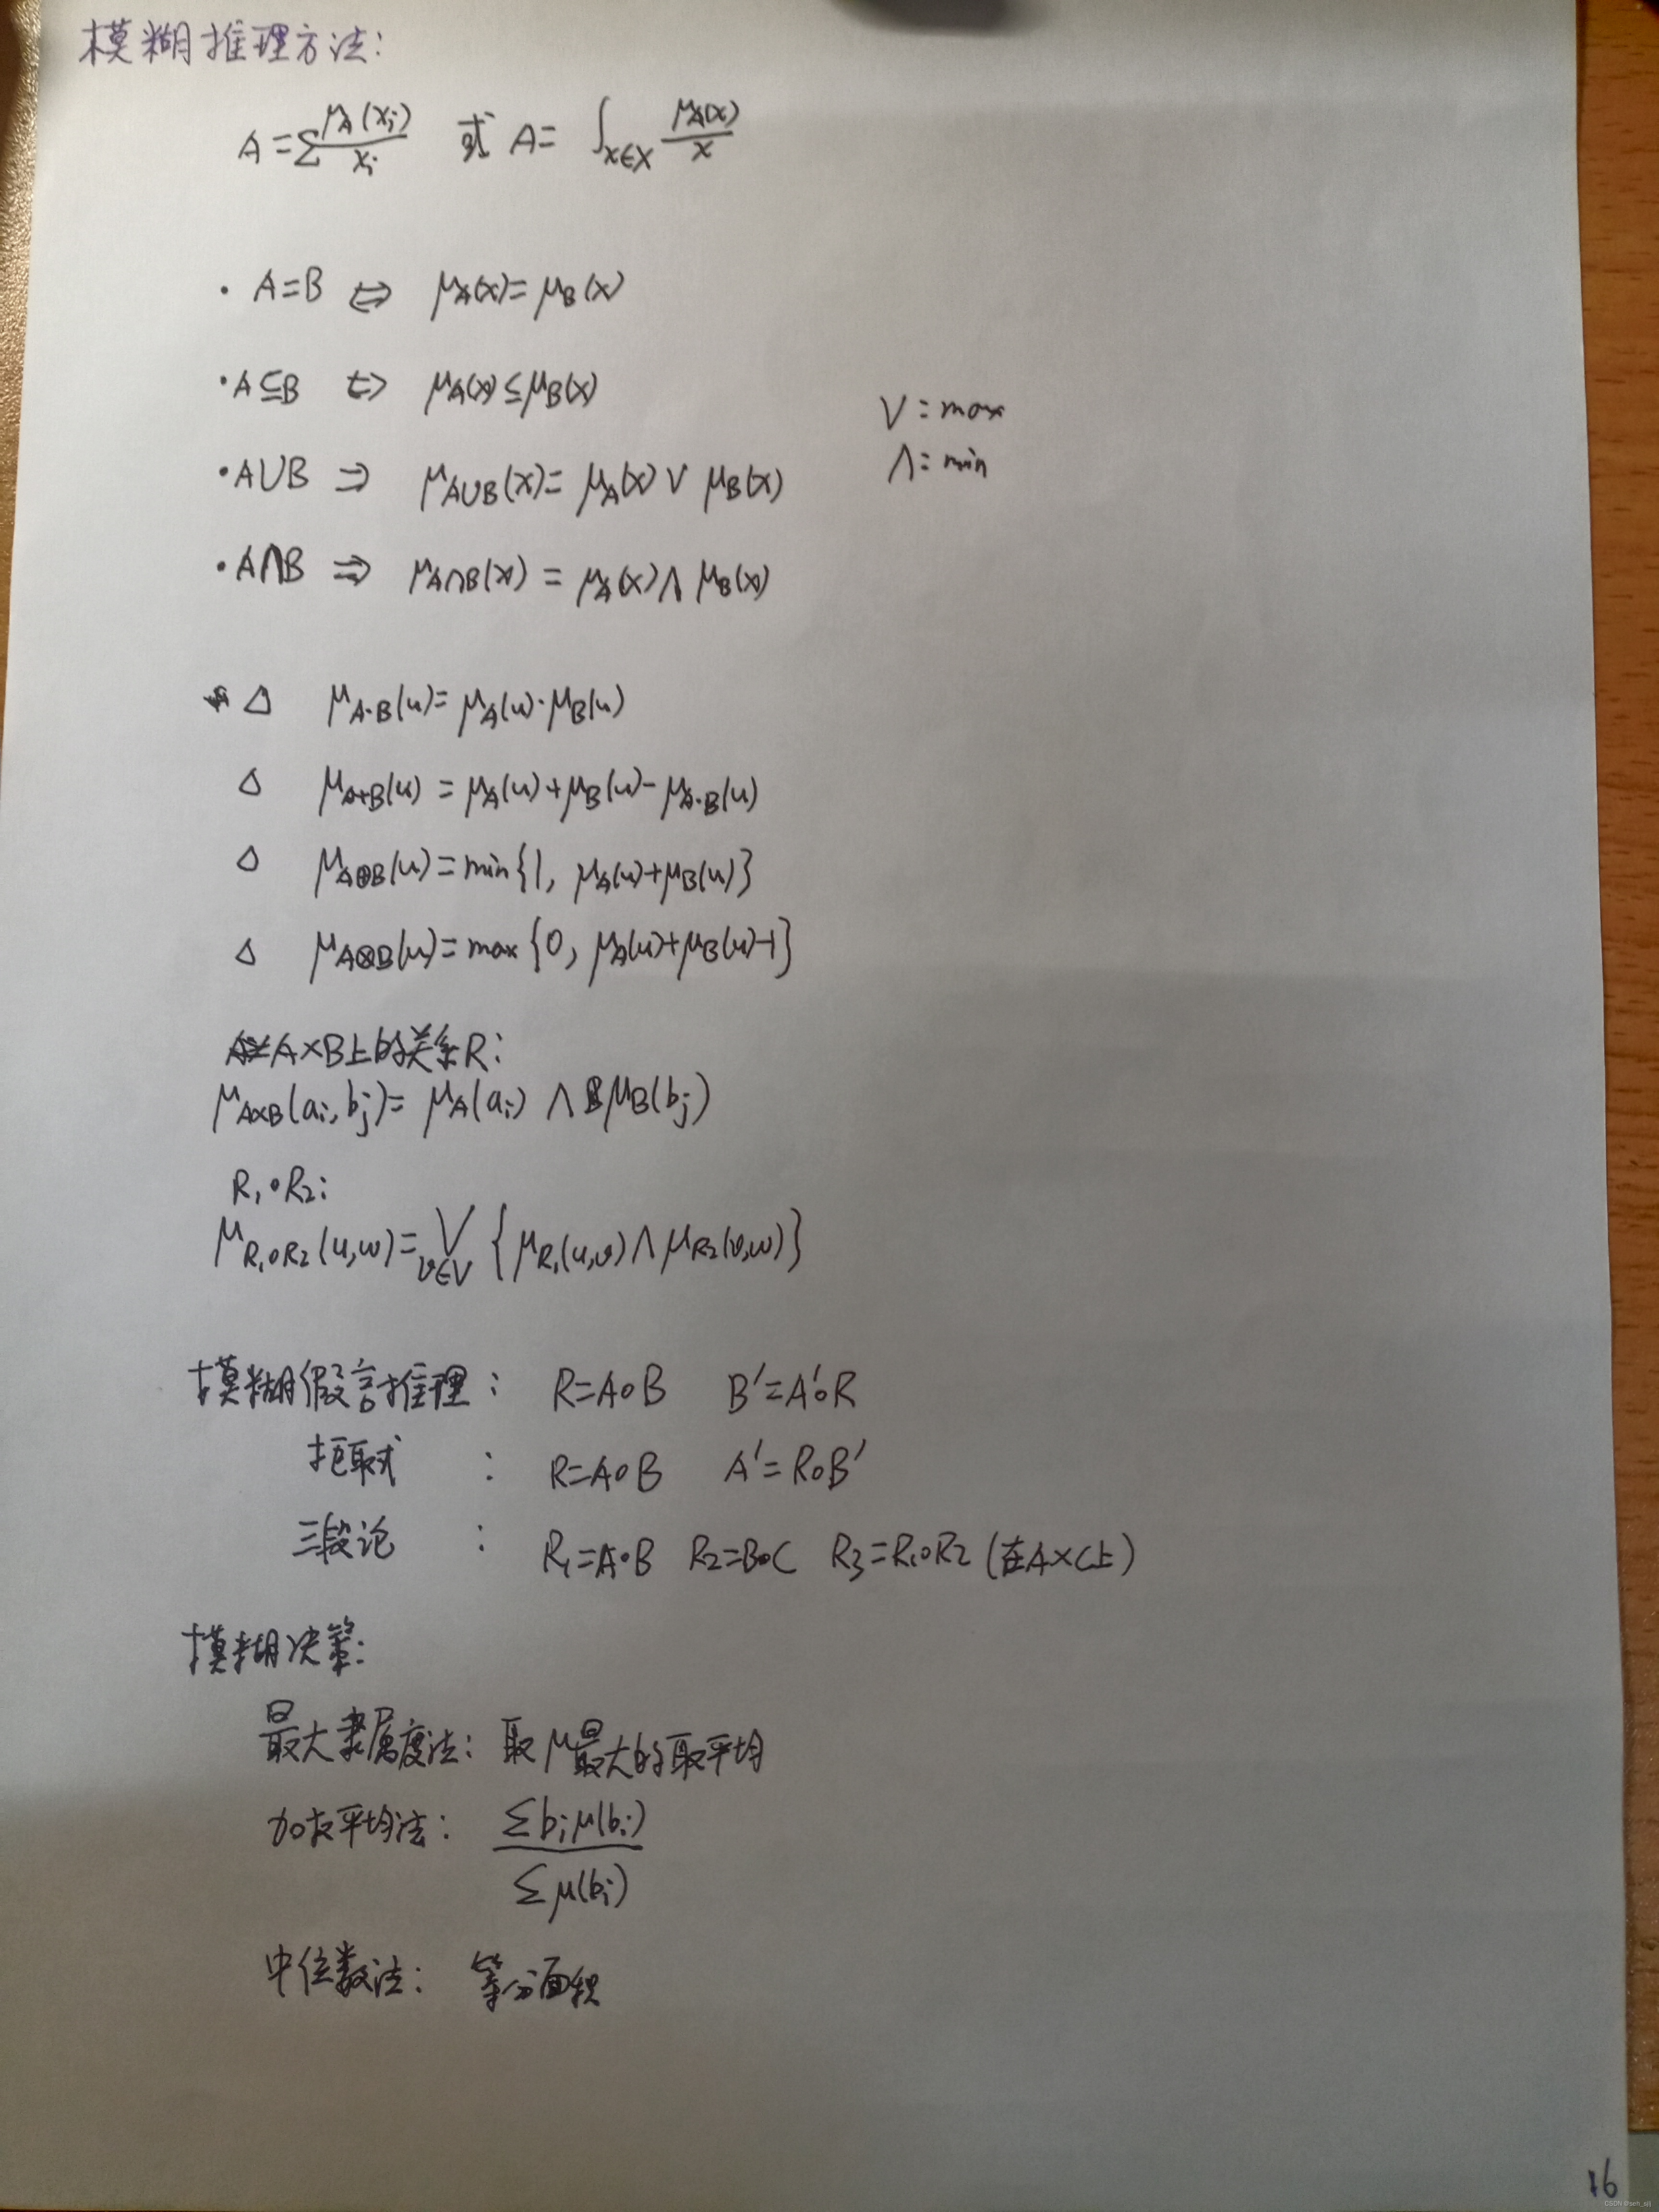 模糊推理方法:
A=∑μ_A(x_i)/x_i 或 A=∫_{x∈X} μ_A(x)/x
· A=B ⇔ μ_A(x)=μ_B(x)
· A⊆B ⇔ μ_A(x)≤μ_B(x)
∨=max
· A∪B ⇒ μ_{A∪B}(x)=μ_A(x)∨μ_B(x)
∧=min
· A∩B ⇒ μ_{A∩B}(x)=μ_A(x)∧μ_B(x)
△ μ_{A·B}(u)=μ_A(u)·μ_B(u)
△ μ_{A+B}(u)=μ_A(u)+μ_B(u)-μ_{A·B}(u)
△ μ_{A⊕B}(u)=min{1, μ_A(u)+μ_B(u)}
△ μ_{A⊗B}(u)=max{0, μ_A(u)+μ_B(u)-1}
A×B上的关系R:
μ_{A×B}(a_i,b_j)=μ_A(a_i)∧μ_B(b_j)
R₁∘R₂:
μ_{R₁∘R₂}(u,w)=∨_{v∈V}{μ_{R₁}(u,v)∧μ_{R₂}(v,w)}
模糊假言推理: R=A∘B B'=A'∘R
拒取式: R=A∘B A'=R∘B'
三段论: R₁=A∘B R₂=B∘C R₃=R₁∘R₂(在A×C上)
模糊决策:
最大隶属度法: 取μ最大的取平均
加权平均法: ∑b_iμ(b_i)/∑μ(b_i)
中位数法: 等分面积
16